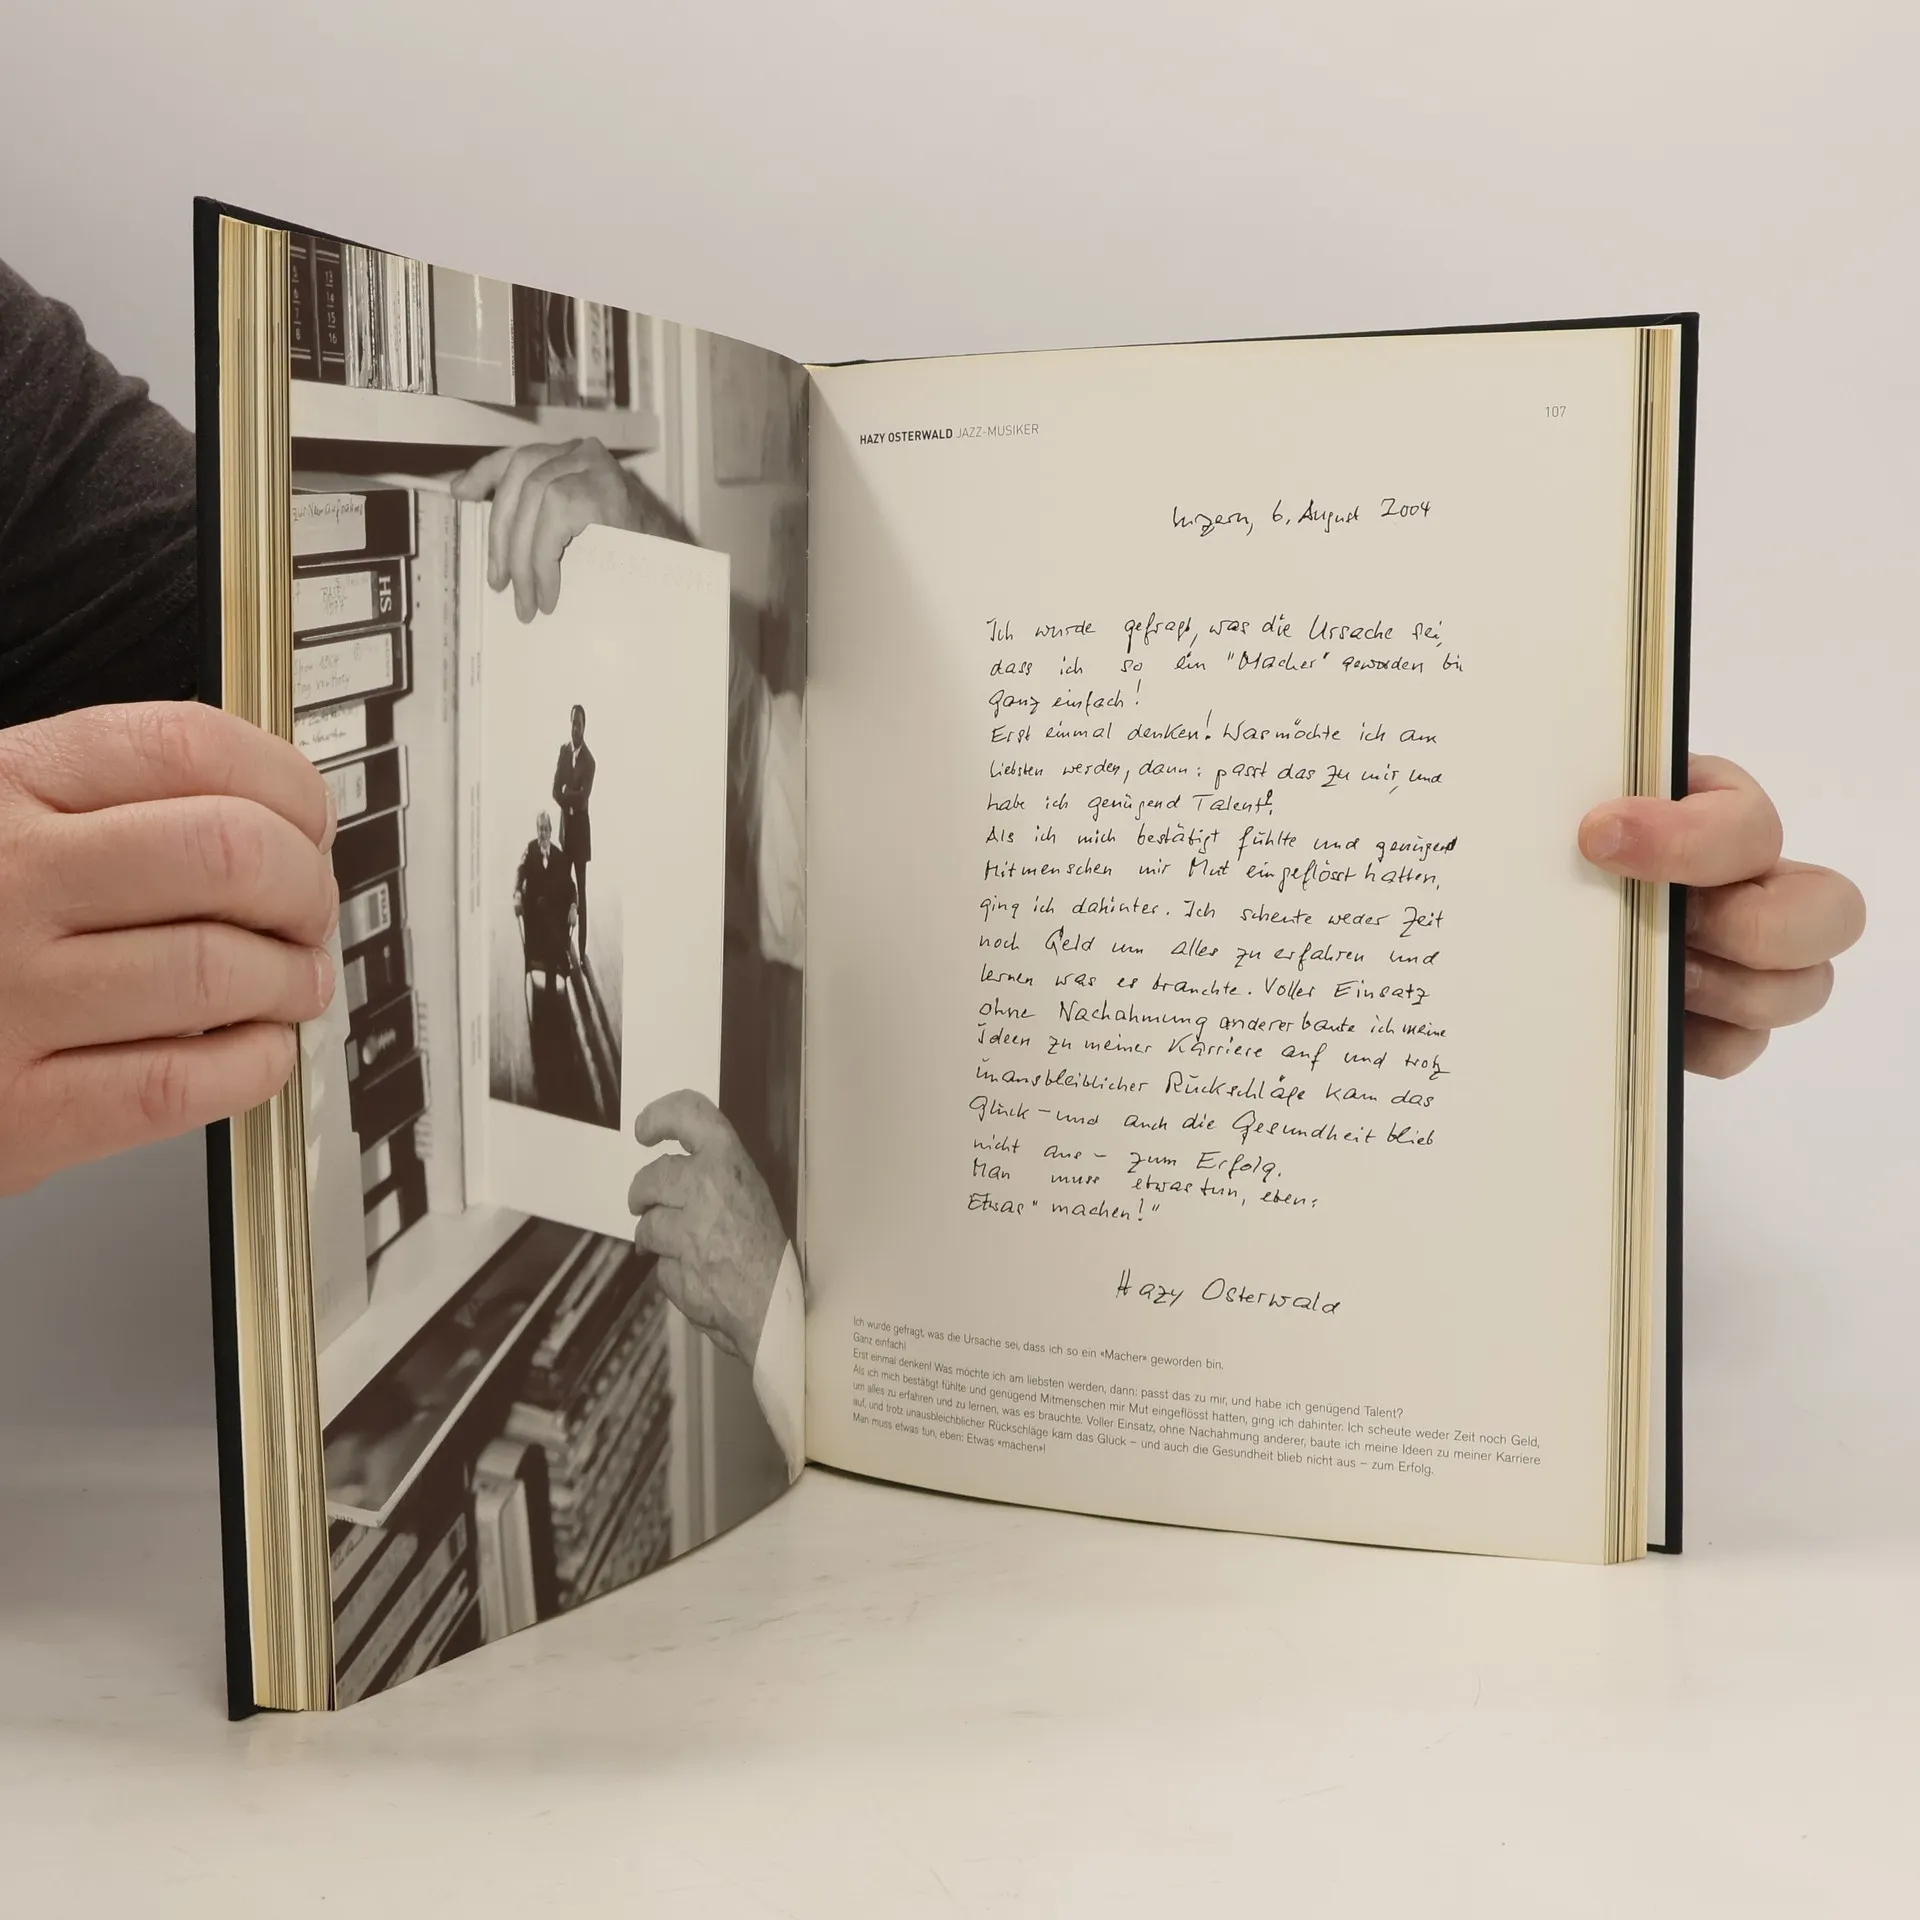 5
6
7
8
13
14
15
16
HS
BASEL
1977
HAZY OSTERWALD JAZZ-MUSIKER
107
Luzern, 6. August 2004
Ich wurde gefragt, was die Ursache sei,
dass ich so ein "Macher" geworden bin
Ganz einfach!
Erst einmal denken! Was möchte ich am
liebsten werden, dann: passt das zu mir, und
habe ich genügend Talent?
Als ich mich bestätigt fühlte und genügend
Mitmenschen mir Mut eingeflösst hatten,
ging ich dahinter. Ich scheute weder Zeit
noch Geld um alles zu erfahren und
lernen was es brauchte. Voller Einsatz
ohne Nachahmung anderer baute ich meine
Ideen zu meiner Karriere auf und trotz
unausbleiblicher Rückschläge kam das
Glück - und auch die Gesundheit blieb
nicht aus - zum Erfolg.
Man muss etwas tun, eben:
Etwas "machen!"
Hazy Osterwald
Ich wurde gefragt, was die Ursache sei, dass ich so ein «Macher» geworden bin.
Ganz einfach!
Erst einmal denken! Was möchte ich am liebsten werden, dann: passt das zu mir, und habe ich genügend Talent?
Als ich mich bestätigt fühlte und genügend Mitmenschen mir Mut eingeflösst hatten, ging ich dahinter. Ich scheute weder Zeit noch Geld,
um alles zu erfahren und zu lernen, was es brauchte. Voller Einsatz, ohne Nachahmung anderer, baute ich meine Ideen zu meiner Karriere
auf, und trotz unausbleichblicher Rückschläge kam das Glück – und auch die Gesundheit blieb nicht aus – zum Erfolg.
Man muss etwas tun, eben: Etwas «machen»!